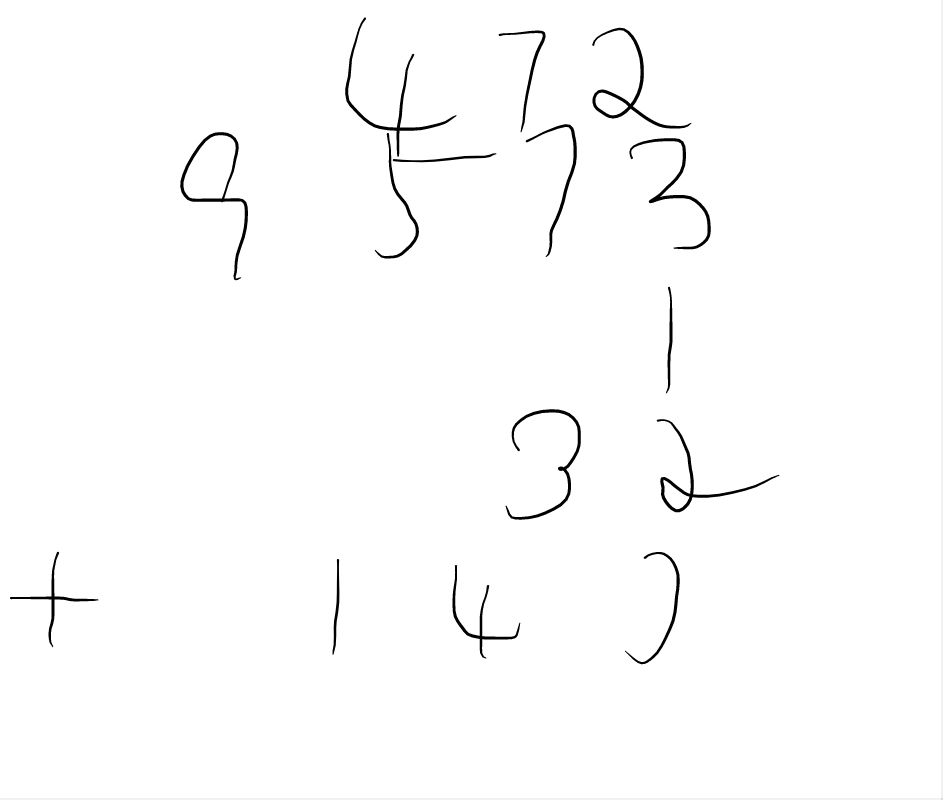 472
9573
1
32
+ 14